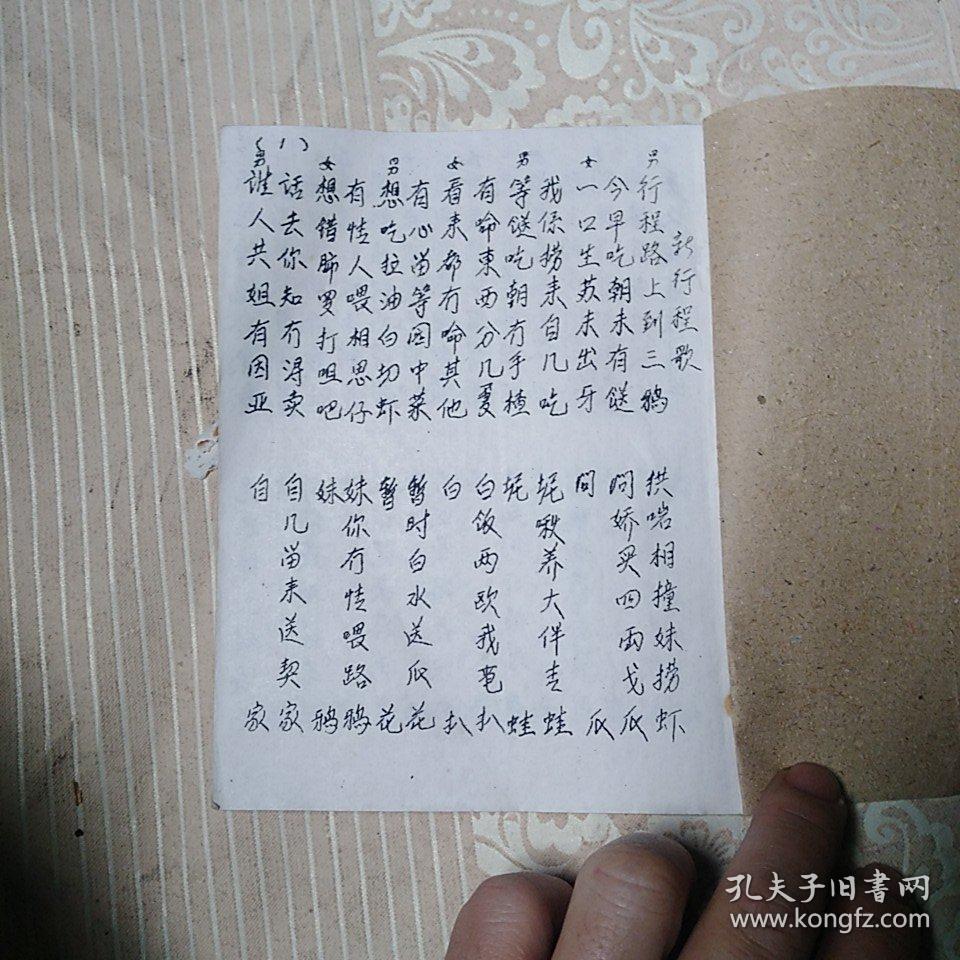 新行程歌
男 行程路上到三鸦 拱啱相撞妹捞虾
今早吃朝未有餸 问娇买四两戈瓜
女 一口生苏未出牙 问 瓜
我係捞来自几吃 坭啾养大伴青蛙
男 等餸吃朝冇手楂 坭 蛙
有命東西分几夏 白饭两欧我芭扒
女 看来都冇命其他 白 扒
有心畄等园中菜 暂时白水送瓜花
男 想吃拉油白切虾 暂 花
有情人喂相思仔 妹你冇情喂路鸦
女 想错肺罗打咀吧 妹 鸦
话去你知冇淂卖 自几畄来送契家
男 谁人共姐有因亚 自 家
(1)
孔夫子旧書网
www.kongfz.com